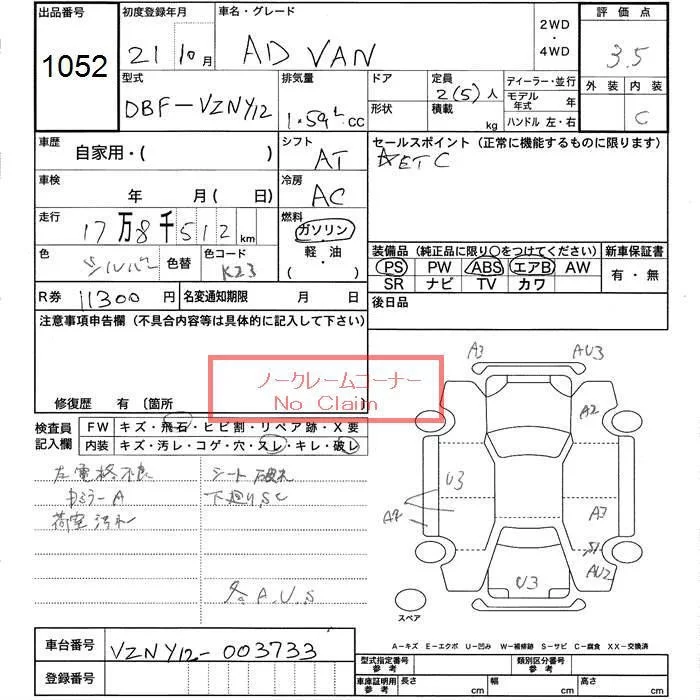 出品番号 初度登録年月 車名・グレード 2WD・4WD 評価点
1052 21 10月 AD VAN 3.5
型式 排気量 ドア 定員 ディーラー・並行 外装 内装
DBF-VZNY12 1.59L CC 形状 2(5)人 モデル年式 年 C
積載 kg ハンドル 左・右
車歴 自家用・( ) シフト AT セールスポイント (正常に機能するものに限ります)
ETC
車検 年 月 ( 日) 冷房 AC
走行 17万8千512km 燃料 ガソリン・軽・油 ( )
装備品 (純正品に限り〇をつけてください) 新車保証書
色 シルバー 色替 色コード K23 PS PW ABS エアB AW 有・無
SR ナビ TV カワ
R券 11300円 名変通知期限 月 日 後日品
注意事項申告欄 (不具合内容等は具体的に記入して下さい)
ノークレームコーナー
No Claim
修復歴 有 〔箇所 〕
検査員記入欄 FW キズ・飛石・ヒビ割・リペア跡・X要
内装 キズ・汚レ・コゲ・穴・スレ・キレ・破レ
左電格不良 シート破れ
ミラーA 下廻りSC
荷室汚れ
各A.U.S
A3 AU3
A2
U3
A3
S1
AU2
U3
スペア
A-キズ E-エクボ U-凹み W-補修跡 S-サビ C-腐食 XX-交換済
車台番号 VZNY12-003733
登録番号
型式指定番号 参考 類別区分番号 参考
車庫証明用 参考 長さ cm 幅 cm 高さ cm